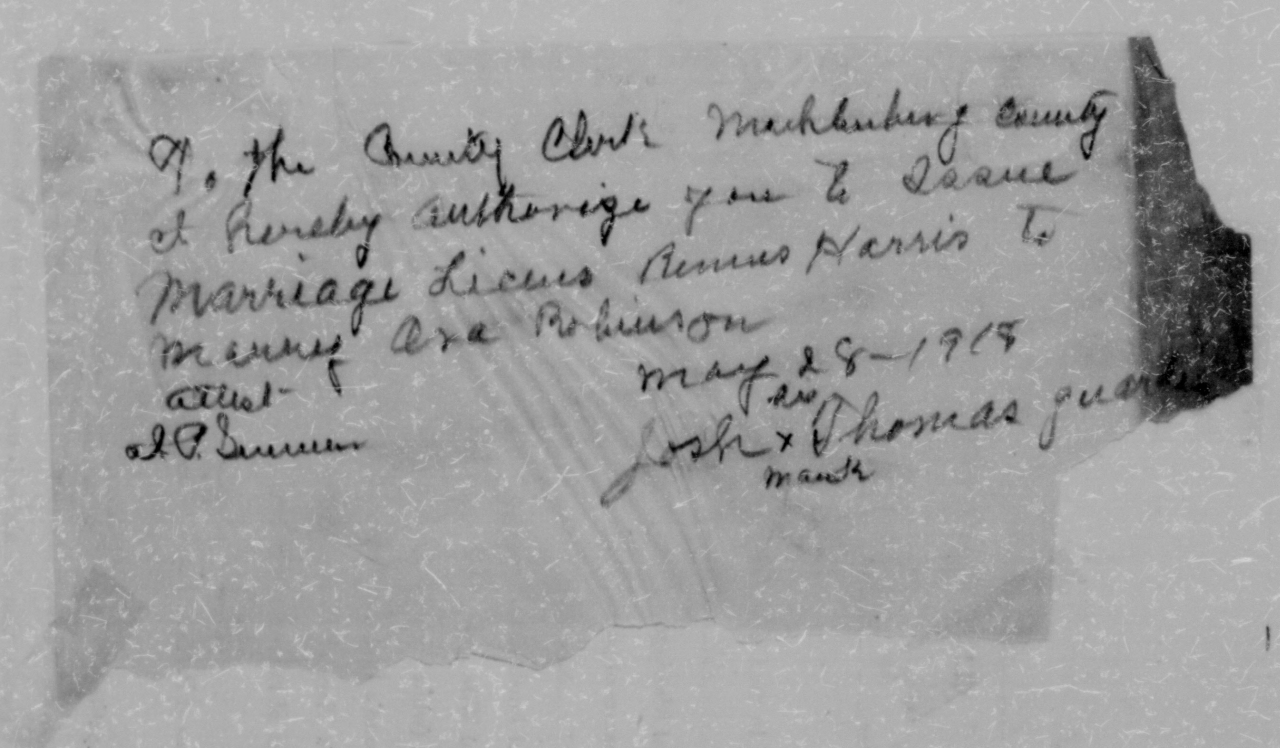 To, the County Clerk Mecklenburg County
I hereby authorize you to Issue
Marriage Licens Remus Harris to
Marry Ora Robinson
May 28-1918
attest
his
Josh x Thomas
mark